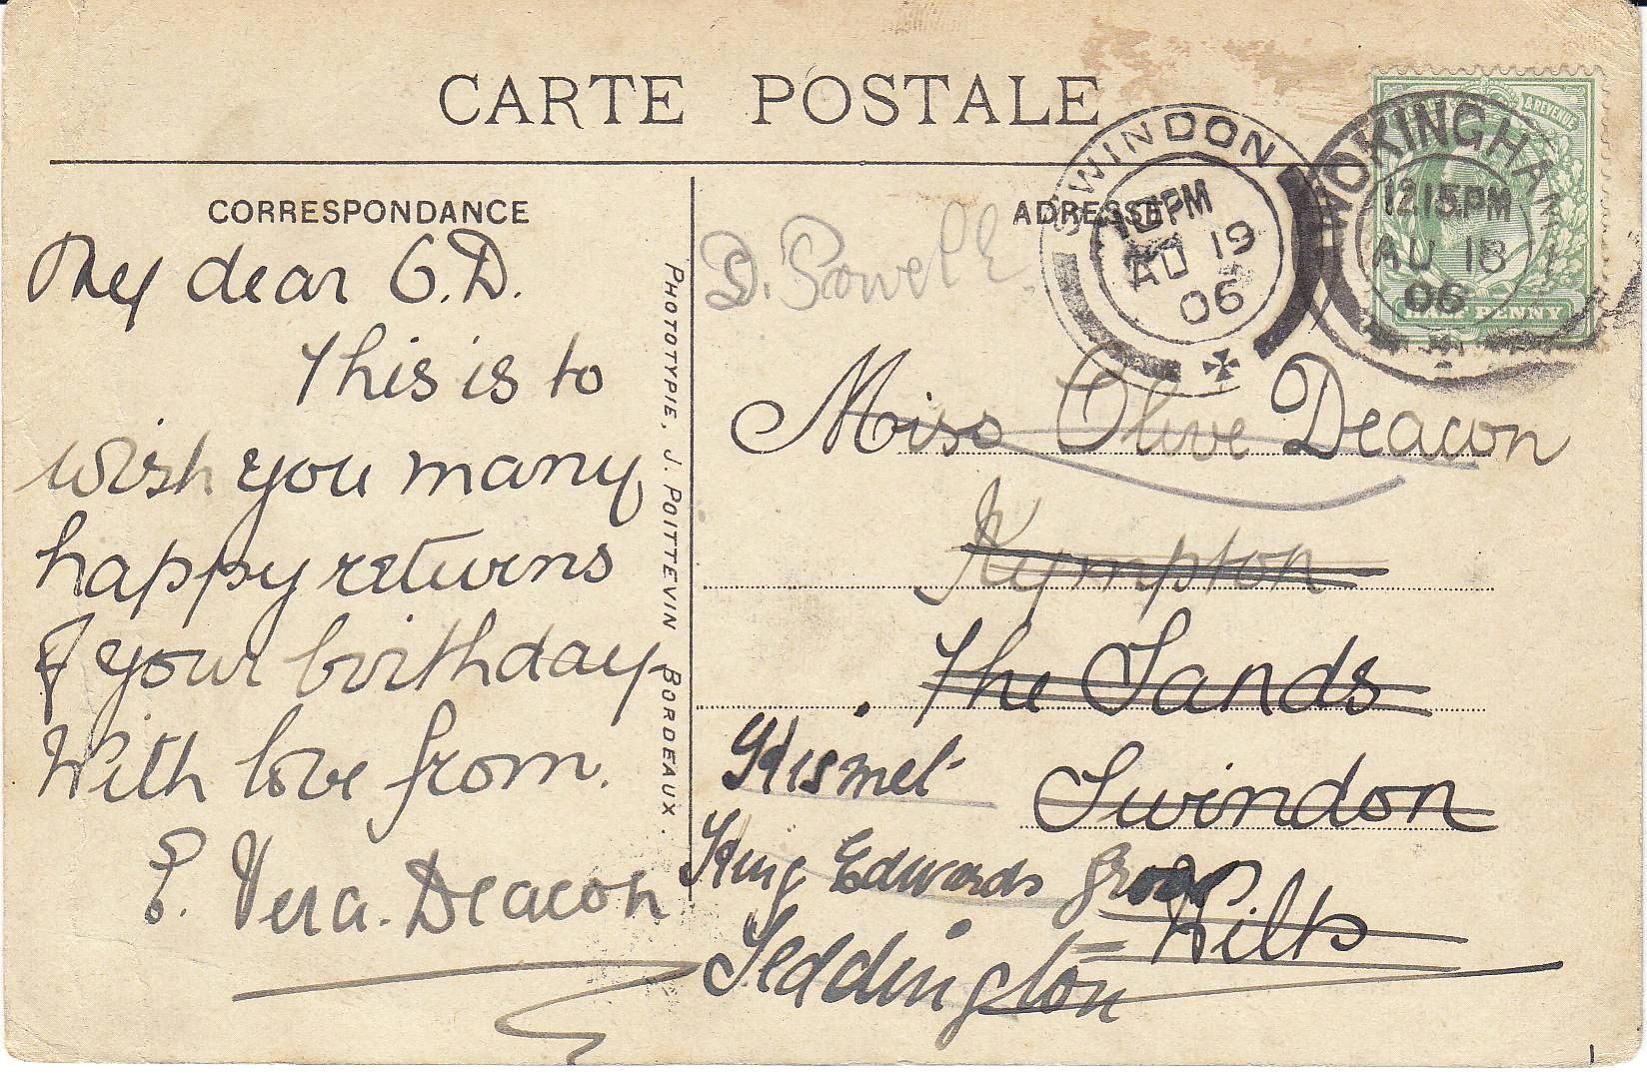 CARTE POSTALE
CORRESPONDANCE
ADRESSE
My dear O.D.
This is to
wish you many
happy returns
of your birthday
With love from.
E. Vera. Deacon
PHOTOTYPIE, J. POITTEVIN BORDEAUX.
D. Powell
SWINDON
PM
AU 19
06
WOKINGHAM
12.15.PM
AU 18
06
& REVENUE
HALF PENNY
Miss Olive Deacon
Kympton
The Sands
Swindon
Wilts
Kismet
King Edwards Grove
Teddington